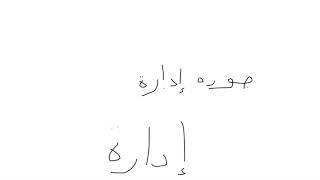 جوده إدارة
إدارة